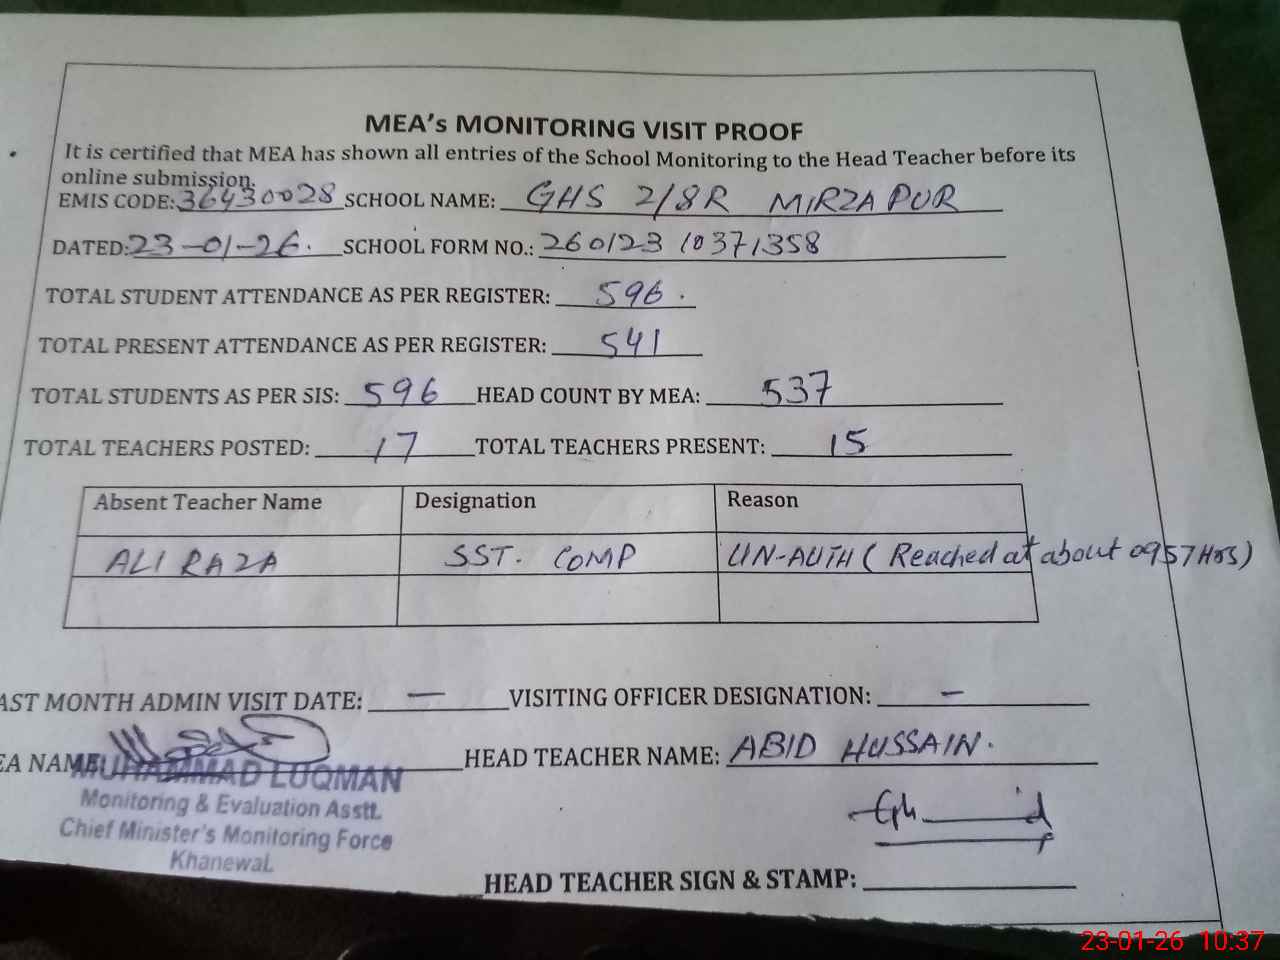 MEA's MONITORING VISIT PROOF
It is certified that MEA has shown all entries of the School Monitoring to the Head Teacher before its
online submission.
EMIS CODE: 36430028 SCHOOL NAME: GHS 2/8R MIRZA PUR
DATED: 23-01-26. SCHOOL FORM NO.: 260123 10371358
TOTAL STUDENT ATTENDANCE AS PER REGISTER: 596.
TOTAL PRESENT ATTENDANCE AS PER REGISTER: 541
TOTAL STUDENTS AS PER SIS: 596 HEAD COUNT BY MEA: 537
TOTAL TEACHERS POSTED: 17 TOTAL TEACHERS PRESENT: 15
Absent Teacher Name Designation Reason
ALI RAZA SST. COMP UN-AUTH (Reached at about 0957 Hrs)
AST MONTH ADMIN VISIT DATE: — VISITING OFFICER DESIGNATION: —
EA NAME: HEAD TEACHER NAME: ABID HUSSAIN.
MUHAMMAD LUQMAN
Monitoring & Evaluation Asstt.
Chief Minister's Monitoring Force
Khanewal.
HEAD TEACHER SIGN & STAMP:
23-01-26 10:37